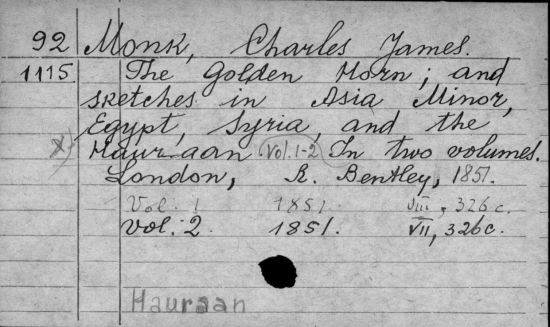 92 Monk, Charles James.
1115 The Golden Horn; and
sketches in Asia Minor,
Egypt, Syria, and the
x) Hauraan (Vol. 1-2) In two volumes.
London, R. Bentley, 1851.
Vol. 1 1851 VIII, 326 c.
Vol. 2. 1851. VII, 326 c.
Hauraan